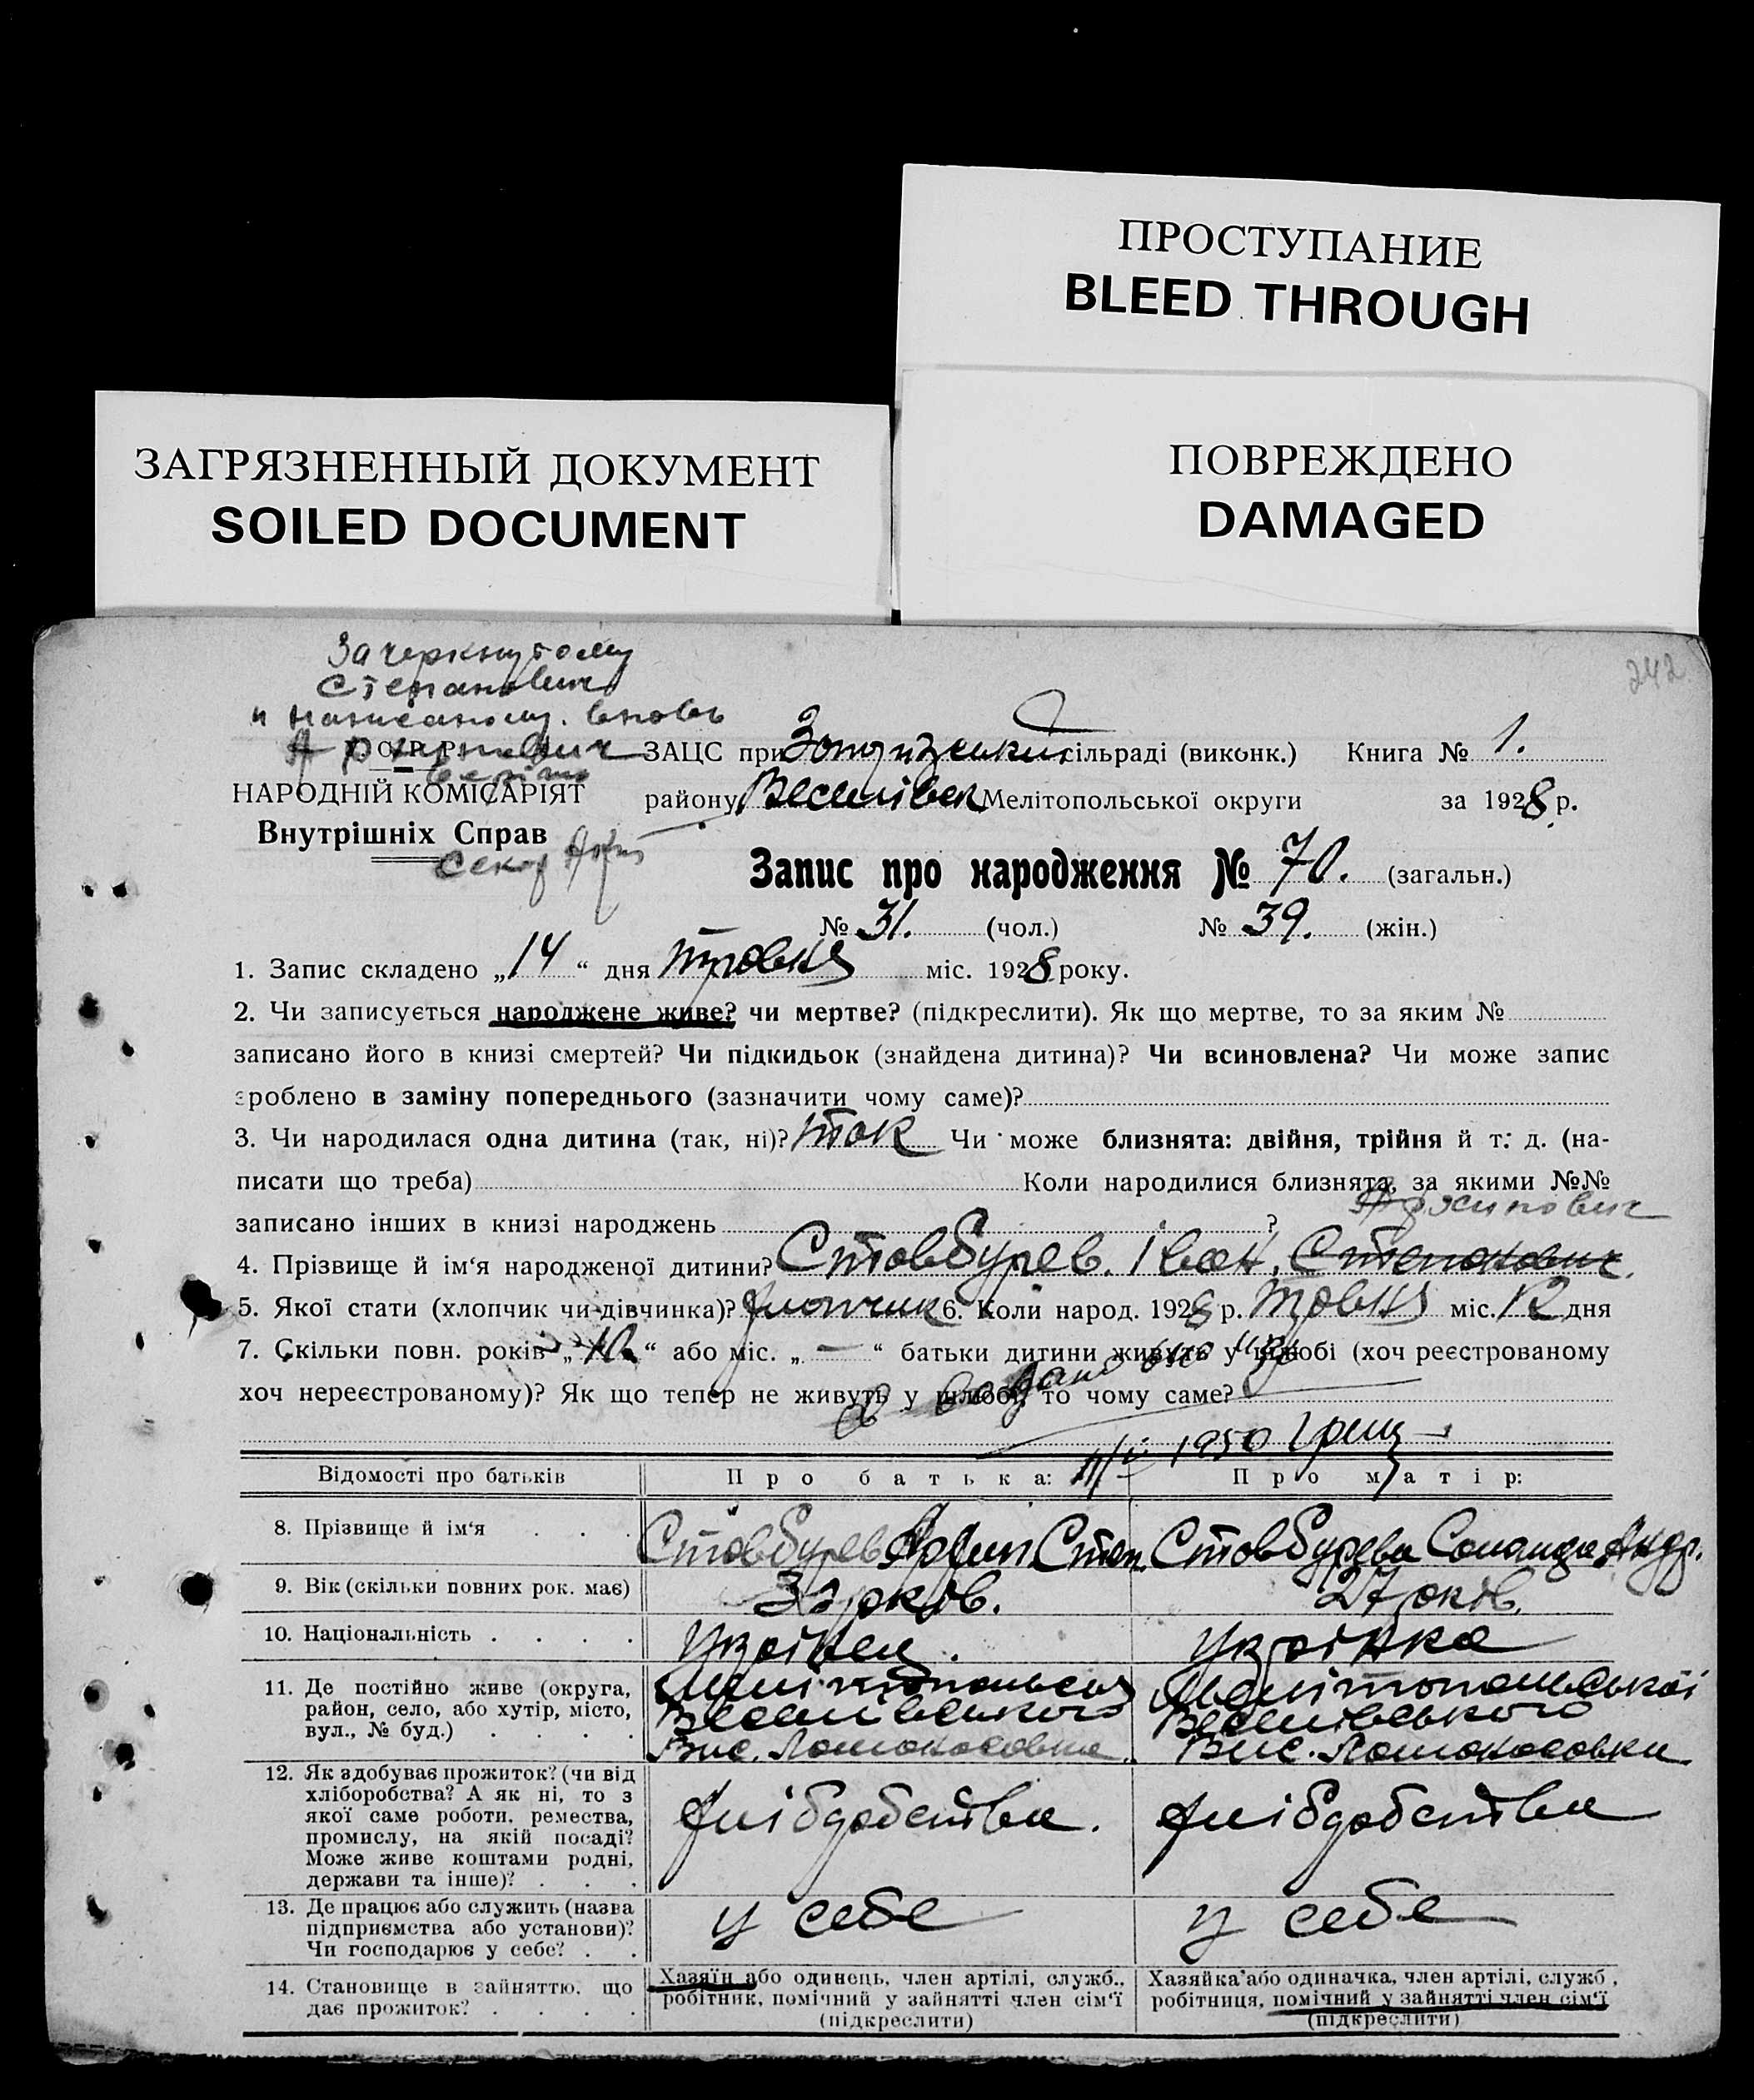 ПРОСТУПАНИЕ
BLEED THROUGH
ЗАГРЯЗНЕННЫЙ ДОКУМЕНТ
SOILED DOCUMENT
ПОВРЕЖДЕНО
DAMAGED
242
Зачеркнутому
Степанович
и написаному вновь
ЗАЦС при сільраді (виконк.) Книга № 1.
НАРОДНІЙ КОМІСАРІЯТ
району Веселівськ Мелітопольської округи за 1928 р.
Внутрішніх Справ
Запис про народження № 70. (загальн.)
№ 31. (чол.) № 39. (жін.)
1. Запис складено „14“ дня травня міс. 1928 року.
2. Чи записується народжене живе? чи мертве? (підкреслити). Як що мертве, то за яким №
записано його в книзі смертей? Чи підкидьок (знайдена дитина)? Чи всиновлена? Чи може запис
зроблено в заміну попереднього (зазначити чому саме)?
3. Чи народилася одна дитина (так, ні)? так Чи може близнята: двійня, трійня й т. д. (на-
писати що треба) Коли народилися близнята, за якими №№
записано інших в книзі народжень ?
Архипович
4. Прізвище й ім‘я народженої дитини? Стовбурев. Іван. Степанович.
5. Якої стати (хлопчик чи дівчинка)? хлопчик 6. Коли народ. 1928 р. травня міс. 12 дня
7. Скільки повн. років „10“ або міс. „—“ батьки дитини живуть у шлюбі (хоч реєстрованому
хоч нереєстрованому)? Як що тепер не живуть у шлюбі, то чому саме?
1950
Відомості про батьків Про батька: Про матір:
8. Прізвище й ім‘я . . . Стовбурев Архип Степ. Стовбурева Соломида Андр.
9. Вік (скільки повних рок. має) років. 27 років.
10. Національність . . . . Українец. Українка
11. Де постійно живе (округа,
район, село, або хутір, місто,
вул., № буд.) . . . .
Мелітопольська
Веселівського
Вис.
Мелітопольської
Веселівського
Вис.
12. Як здобуває прожиток? (чи від
хліборобства? А як ні, то з
якої саме роботи, ремества,
промислу, на якій посаді?
Може живе коштами родні,
держави та інше)? . . .
хлібробства. хлібробства
13. Де працює або служить (назва
підприємства або установи)?
Чи господарює у себе? . .
у себе у себе
14. Становище в зайняттю, що
дає прожиток? . . . .
Хазяїн або одинець, член артілі, служб.,
робітник, помічний у зайнятті член сім‘ї
(підкреслити)
Хазяйка або одиначка, член артілі, служб.,
робітниця, помічний у зайнятті член сім‘ї
(підкреслити)